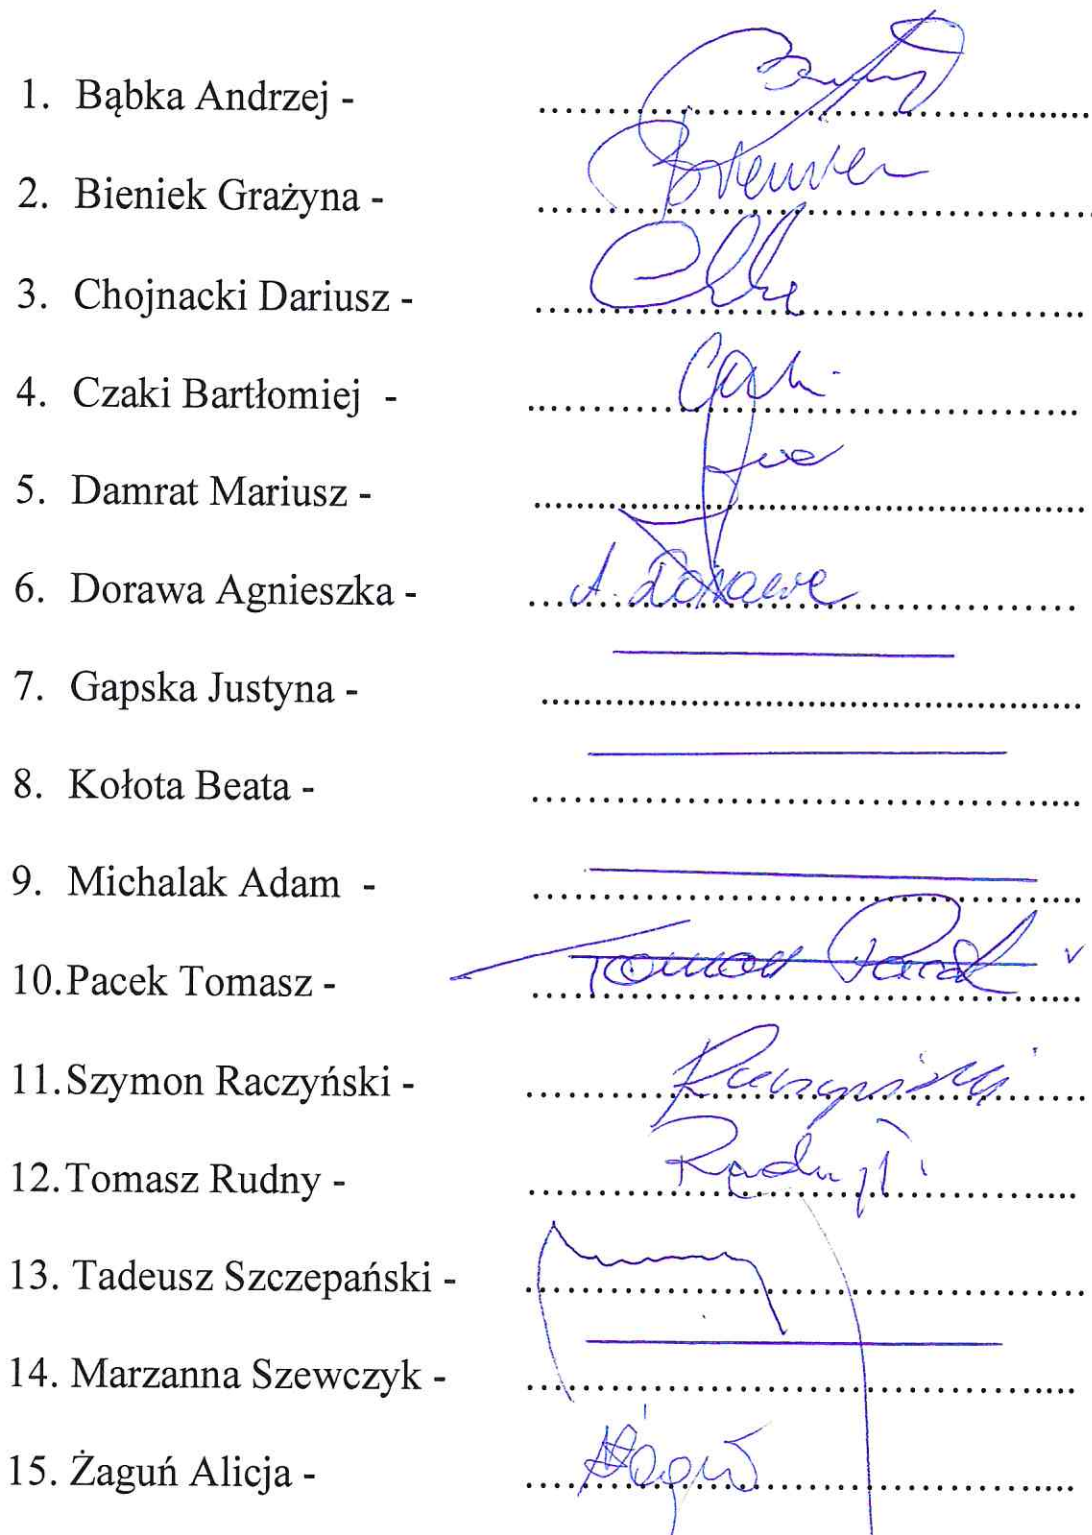 1. Bąbka Andrzej - ........................................
2. Bieniek Grażyna - ........................................
3. Chojnacki Dariusz - ........................................
4. Czaki Bartłomiej - ........................................
5. Damrat Mariusz - ........................................
6. Dorawa Agnieszka - A. Dorawa
7. Gapska Justyna - ........................................
8. Kołota Beata - ........................................
9. Michalak Adam - ........................................
10. Pacek Tomasz - Tomasz Pacek
11. Szymon Raczyński - Raczyński
12. Tomasz Rudny - ........................................
13. Tadeusz Szczepański - ........................................
14. Marzanna Szewczyk - ........................................
15. Żaguń Alicja - ........................................